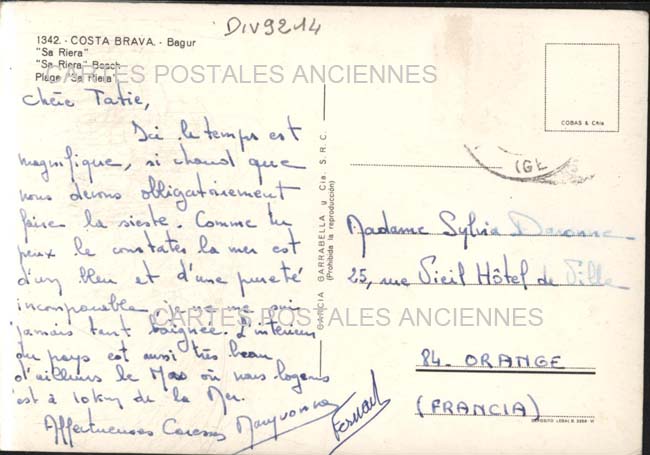 DIV9214
1342. - COSTA BRAVA. - Bagur
"Sa Riera"
"Sa Riera" Beach
Plage "Sa Riera"
CARTES POSTALES ANCIENNES
COBAS & Cía
Chère Tatie,
Ici le temps est
magnifique, si chaud que
nous devons obligatoirement
faire la sieste. Comme tu
peux le constater la mer est
d'un bleu et d'une pureté
incomparable je ne me suis
jamais tant baignée. L'intérieur
du pays est aussi très beau
d'ailleurs le Mas où nous logeons
est à 10 km de la Mer.
Affectueuses Caresses Maryvonne
Fernand
CARTES POSTALES ANCIENNES
GARCIA GARRABELLA y Cía. S.R.C.
(Prohibida la reproducción)
IGE
Madame Sylvia
25, rue Vieil Hôtel de Ville
84. ORANGE
(FRANCIA)
DEPOSITO LEGAL B. VI